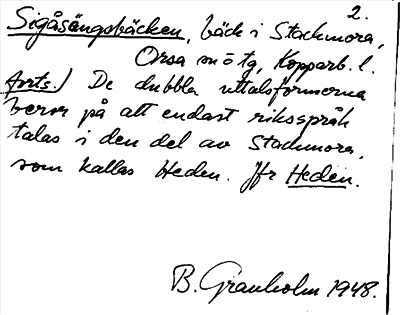 2.
Sigåsängsbäcken, bäck i Stackmora,
Orsa sn ö tg, Kopparb. l.
Forts.) De dubbla uttalsformerna
beror på att endast riksspråk
talas i den del av Stackmora,
som kallas Heden. Jfr Heden.
B. Granholm 1948.